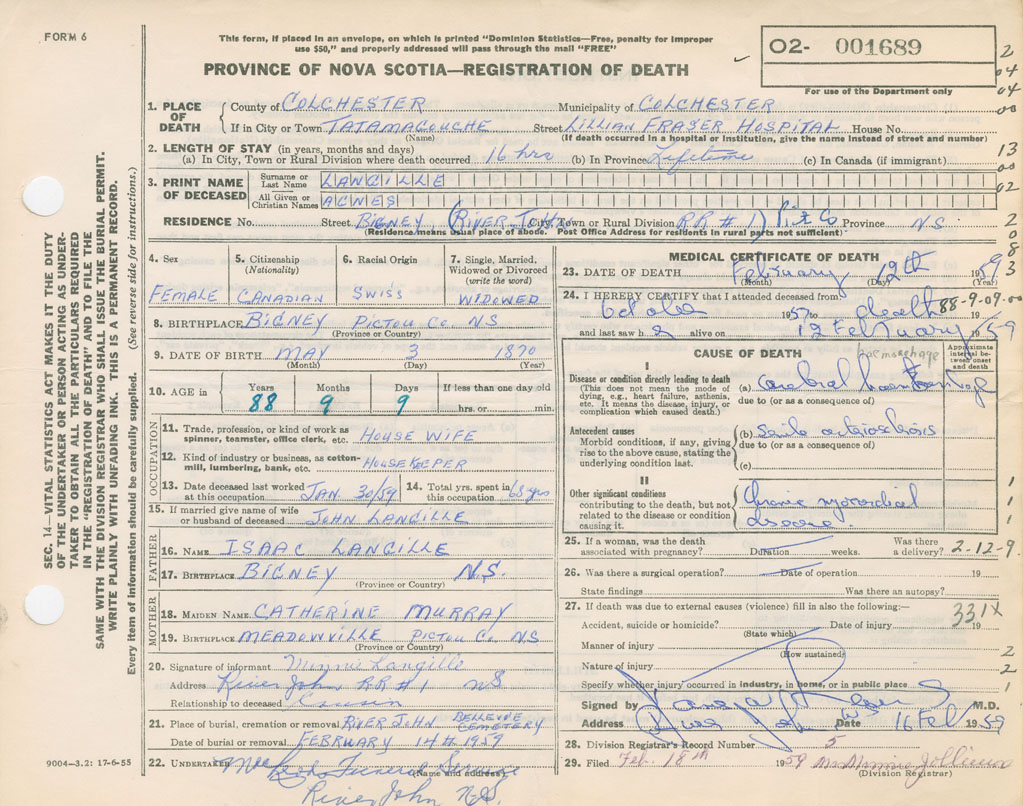 FORM 6
This form, if placed in an envelope, on which is printed "Dominion Statistics—Free, penalty for improper
use $50," and properly addressed will pass through the mail "FREE"
PROVINCE OF NOVA SCOTIA—REGISTRATION OF DEATH
O2- 001689
For use of the Department only
2
04
04
00
13
00
02
2
0
8
3
SEC. 14—VITAL STATISTICS ACT MAKES IT THE DUTY
OF THE UNDERTAKER OR PERSON ACTING AS UNDER-
TAKER TO OBTAIN ALL THE PARTICULARS REQUIRED
IN THE "REGISTRATION OF DEATH" AND TO FILE THE
SAME WITH THE DIVISION REGISTRAR WHO SHALL ISSUE THE BURIAL PERMIT.
WRITE PLAINLY WITH UNFADING INK. THIS IS A PERMANENT RECORD.
Every item of information should be carefully supplied. (See reverse side for instructions.)
1. PLACE OF DEATH County of COLCHESTER Municipality of COLCHESTER
If in City or Town TATAMAGOUCHE Street LILLIAN FRASER HOSPITAL House No.
(Name) (If death occurred in a hospital or institution, give the name instead of street and number)
2. LENGTH OF STAY (in years, months and days)
(a) In City, Town or Rural Division where death occurred 16 hrs (b) In Province Lifetime (c) In Canada (if immigrant)
3. PRINT NAME OF DECEASED Surname or Last Name LANGILLE
All Given or Christian Names AGNES
RESIDENCE No. Street BIGNEY (RIVER JOHN City, Town or Rural Division RR #1) Pict Co Province NS
(Residence means usual place of abode. Post Office Address for residents in rural parts not sufficient)
4. Sex FEMALE
5. Citizenship (Nationality) CANADIAN
6. Racial Origin SWISS
7. Single, Married, Widowed or Divorced (write the word) WIDOWED
8. BIRTHPLACE BIGNEY PICTOU CO. NS
(Province or Country)
9. DATE OF BIRTH MAY 3 1870
(Month) (Day) (Year)
10. AGE in Years 88 Months 9 Days 9 If less than one day old hrs. or min.
OCCUPATION
11. Trade, profession, or kind of work as spinner, teamster, office clerk, etc. HOUSE WIFE
12. Kind of industry or business, as cotton-mill, lumbering, bank, etc. HOUSEKEEPER
13. Date deceased last worked at this occupation JAN. 30/59 14. Total yrs. spent in this occupation 68 yrs
15. If married give name of wife or husband of deceased JOHN LANGILLE
FATHER
16. NAME ISAAC LANGILLE
17. BIRTHPLACE BIGNEY N.S.
(Province or Country)
MOTHER
18. MAIDEN NAME CATHERINE MURRAY
19. BIRTHPLACE MEADOWVILLE PICTOU CO. NS
(Province or Country)
20. Signature of informant Minnie Langille
Address River John RR #1 NS
Relationship to deceased Cousin
21. Place of burial, cremation or removal RIVER JOHN BELLEVUE CEMETERY
Date of burial or removal FEBRUARY 14th 1959
22. UNDERTAKER Funeral Service
(Name and address)
River John N.S.
9004—3.2: 17-6-55
MEDICAL CERTIFICATE OF DEATH
23. DATE OF DEATH February 12th 1959
(Month) (Day) (Year)
24. I HEREBY CERTIFY that I attended deceased from
October 1957 to death 88-9-09-00
and last saw h alive on 12 February 1959
CAUSE OF DEATH haemorrhage
Approximate interval between onset and death
I
Disease or condition directly leading to death
(This does not mean the mode of dying, e.g., heart failure, asthenia, etc. It means the disease, injury, or complication which caused death.)
(a) Cerebral haemorrhage
due to (or as a consequence of)
Antecedent causes
Morbid conditions, if any, giving rise to the above cause, stating the underlying condition last.
(b) Senile arteriosclerosis
due to (or as a consequence of)
(c)
II
Other significant conditions
contributing to the death, but not related to the disease or condition causing it.
Chronic myocardial
disease
1
1
1
25. If a woman, was the death associated with pregnancy? Duration weeks. Was there a delivery? 2-12-9
26. Was there a surgical operation? Date of operation 19
State findings Was there an autopsy?
27. If death was due to external causes (violence) fill in also the following:—
331X
Accident, suicide or homicide? Date of injury 19
(State which)
Manner of injury 2
(How sustained)
Nature of injury 2
Specify whether injury occurred in industry, in home, or in public place 1
Signed by M.D.
Address River John NS Date 16 Feb 1959
28. Division Registrar's Record Number 5
29. Filed Feb. 18th 1959 Mrs Minnie
(Division Registrar)